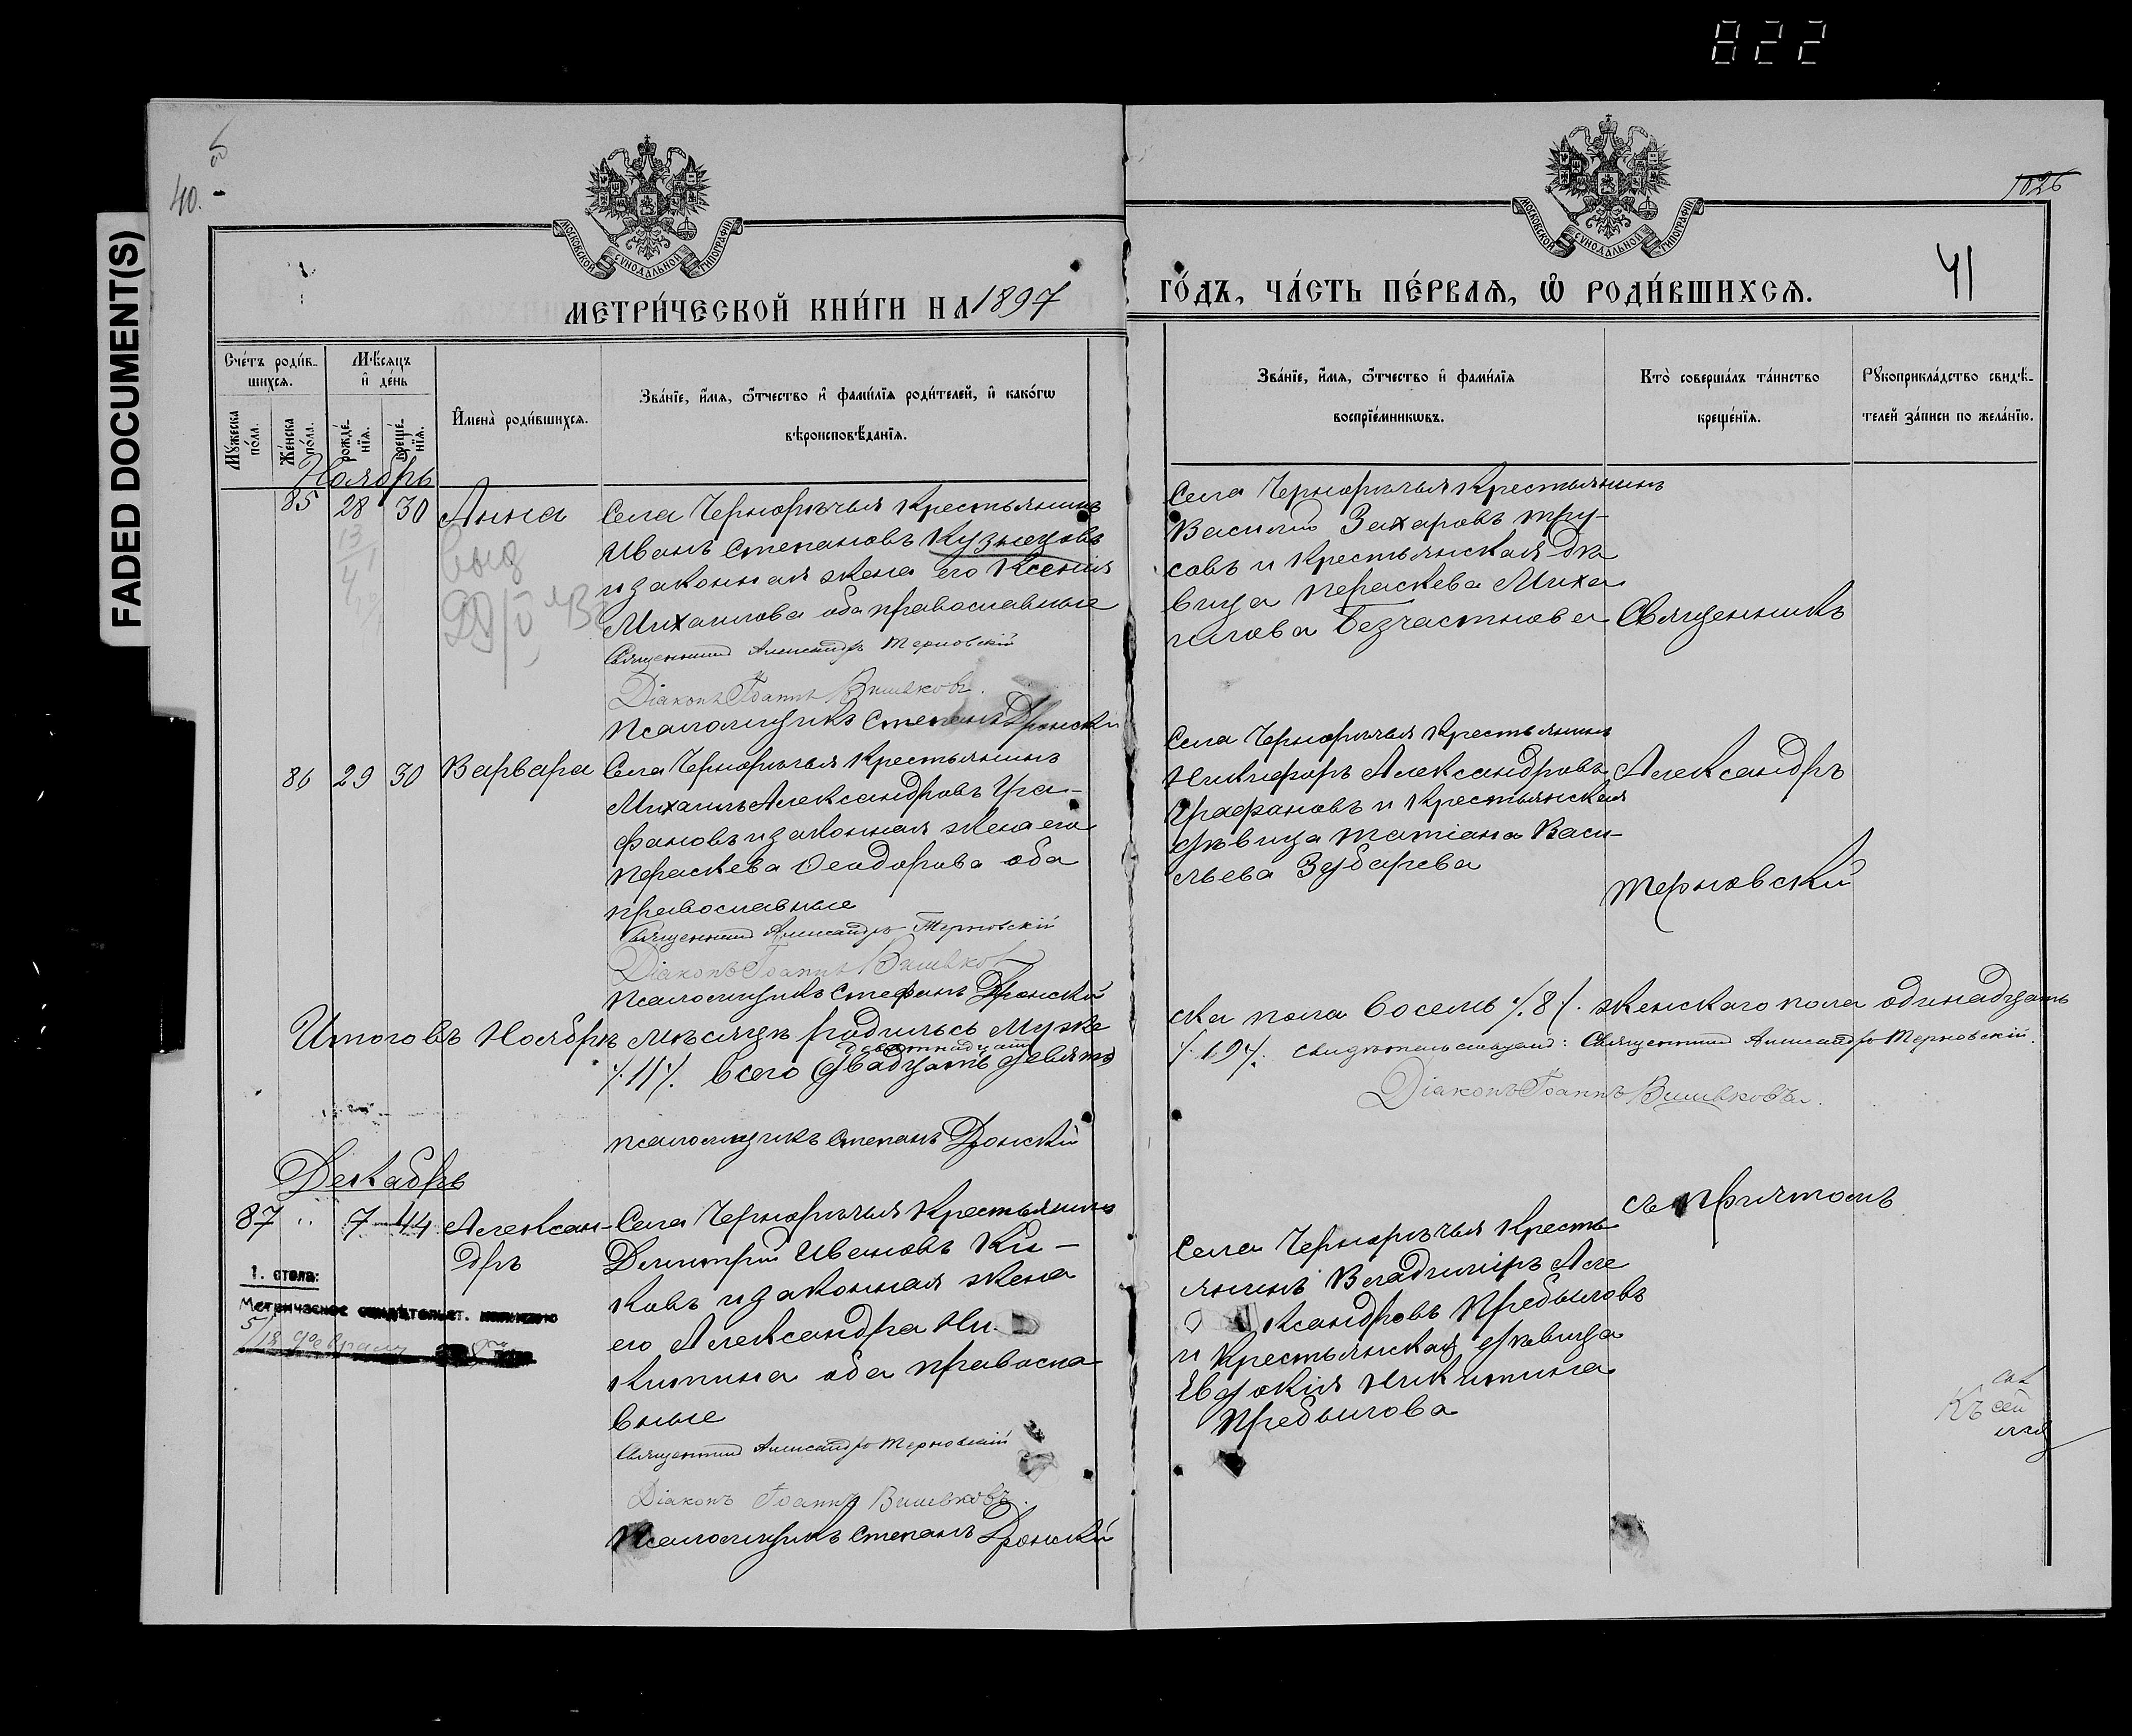 822
FADED DOCUMENT(S)
40.
1026
41
МОСКОВСКОЙ СѴНОДАЛЬНОЙ ТИПОГРАФІИ
МОСКОВСКОЙ СѴНОДАЛЬНОЙ ТИПОГРАФІИ
МЕТРИ́ЧЕСКОЙ КНИ́ГИ НА 1897
ГО́ДЪ, ЧА́СТЬ ПЕ́РВАѦ, Ѡ РОДИ́ВШИХСѦ.
Сче́тъ роди́в-
шихсѧ.
Мѣ́сѧцъ
и҆ де́нь
Мꙋ́жеска
по́ла.
Же́нска
по́ла.
рожде́-
нїѧ.
креще́-
нїѧ.
И҆мена̀ роди́вшихсѧ.
Зва́нїе, и҆́мѧ, ѻ҆́тчество и҆ фами́лїѧ роди́телей, и҆ како́гѡ
вѣроисповѣ́данїѧ.
Зва́нїе, и҆́мѧ, ѻ҆́тчество и҆ фами́лїѧ
воспрїе́мникѡвъ.
Кто̀ соверша́лъ та́инство
креще́нїѧ.
Рꙋкоприкла́дство свидѣ́-
телей за́писи по жела́нїю.
Ноябрь
85 28 30 Анна
Села Чернорѣчья Крестьянинъ
Иванъ Степановъ Кузнецовъ
и законная жена его Ксенія
Михаилова оба православные
Священникъ Александръ Терновскій
Діаконъ Іоаннъ Вишвковъ.
Псаломщикъ Степанъ Дронскій
Села Чернорѣчья Крестьянинъ
Василій Захаровъ Тру-
совъ и крестьянская дѣ
вица Параскева Миха
илова Безчастнова
Священникъ
86 29 30 Варвара
Села Чернорѣчья Крестьянинъ
Михаилъ Александровъ Гра-
фановъ и законная жена его
Параскева Ѳеодорова оба
православные
Священникъ Александръ Терновскій
Діаконъ Іоаннъ Вишвков
Псаломщикъ Стефанъ Дронскій
Села Чернорѣчья Крестьянинъ
Никифоръ Александровъ
Графановъ и Крестьянская
дѣвица Татіана Васи-
льева Зубарева
Александръ
Терновскій
Итого въ Ноябрѣ мѣсяцѣ родилось Муже
ска пола восемь /.8/. женскаго пола одинадцать
девятнадцать
/.11/. всего двадцать девять
/.19/. свидѣтельствуемъ: Священникъ Александръ Терновскій.
Діаконъ Іоаннъ Вишвковъ.
псаломщикъ Степанъ Дронскій
Декабрь
87 " 7 14 Алексан-
дръ
Села Чернорѣчья Крестьянинъ
Димитрій Ивановъ Ки-
ковъ и законная жена
его Александра Ни-
китина оба правосла
вные
Священникъ Александръ Терновскій
Діаконъ Іоаннъ Вишвковъ.
Псаломщикъ Степанъ Дронскій
Села Чернорѣчья Кресть
янинъ Владиміръ Але
ксандровъ Прибыловъ
и Крестьянская дѣвица
Евдокія Никитина
Прибылова
съ причтомъ
1. стола:
Метрическое свидѣтельст.